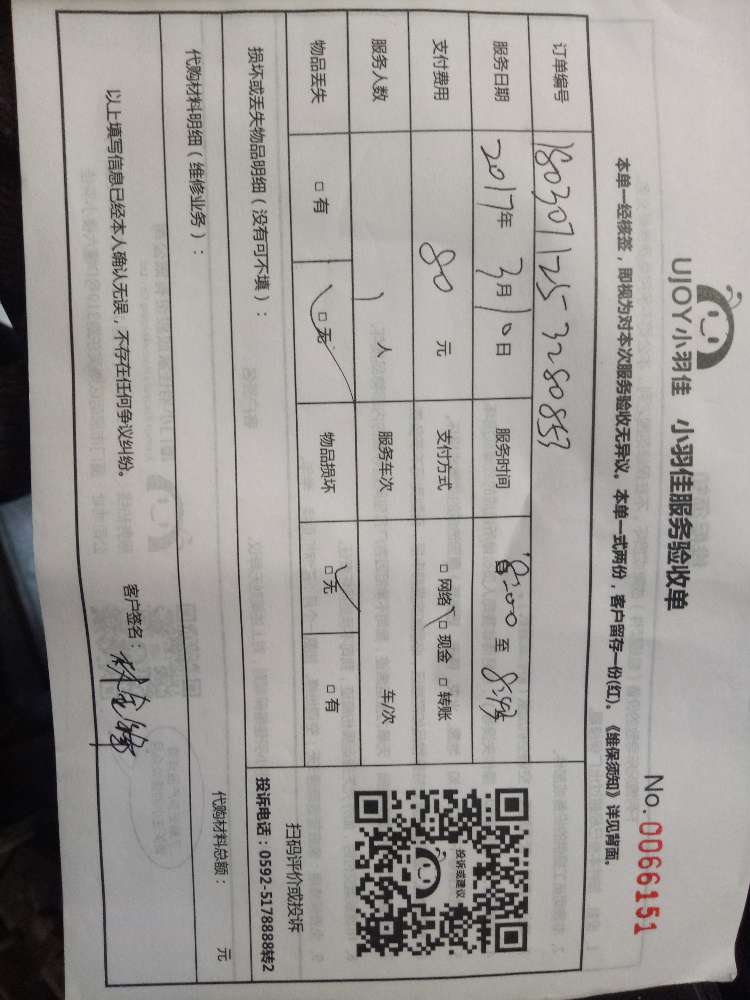 UJOY小羽佳 小羽佳服务验收单
No. 0066151
本单一经核签，即视为对本次服务验收无异议。本单一式两份，客户留存一份(红)。《维保须知》详见背面。
订单编号 1803071253280853
服务日期 2017年 3月10日 服务时间 自8:00 至
支付费用 80 元 支付方式 □ 网络 □ 现金 □ 转账
服务人数 1 人 服务车次 车/次
物品丢失 □ 有 □ 无 物品损坏 □ 无 □ 有
投诉或建议
扫码评价或投诉
投诉电话：0592-5178888转2
损坏或丢失物品明细（没有可不填）：
代购材料明细（维修业务）：
代购材料总额： 元
以上填写信息已经本人确认无误，不存在任何争议纠纷。
客户签名：